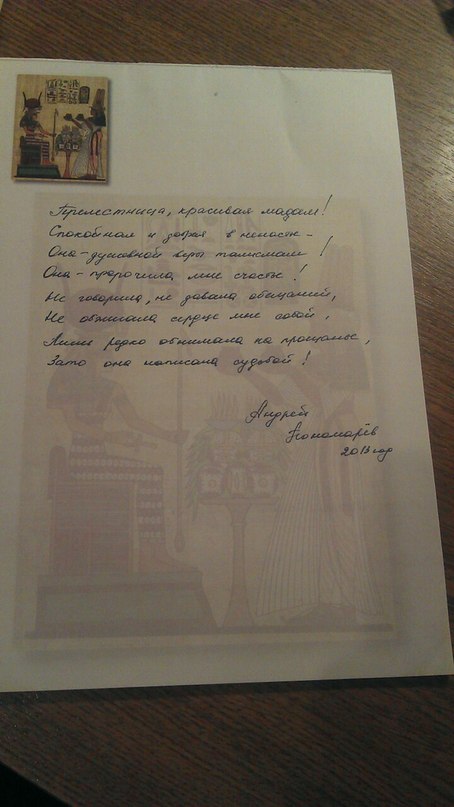 Прелестница, красивая мадам!
Спокойная и добрая в ненастье –
Она – душевной веры талисман!
Она – пророчила мне счастье!
Не говорила, не давала обещаний,
Не обжигала сердце мне собой,
Лишь редко обнимала на прощанье,
Зато она написана судьбой!
Андрей
Пономарёв
2013 год